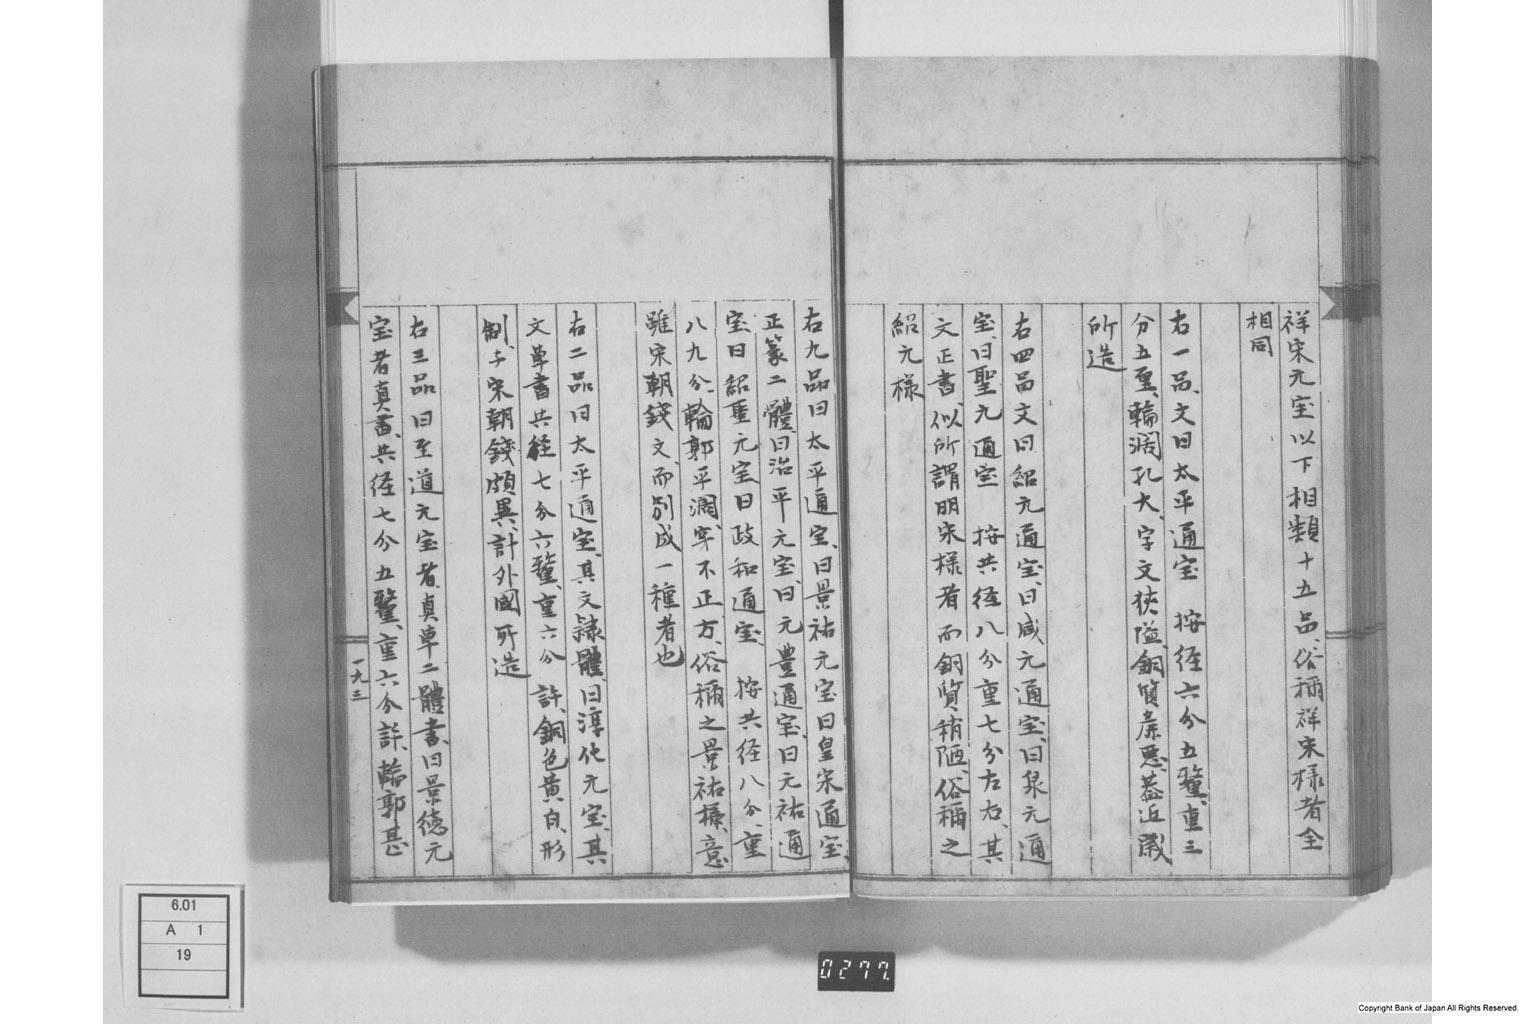 祥宋元宝以下相類十五品、俗稱祥宋様者全
相同
右一品、文曰太平通宝　按径六分五釐、重三
分五釐、輪濶孔大、字文狹隘、銅質麁悪、蓋近歳
所造
右四品文曰紹元通宝、曰咸元通宝、曰泉元通
宝、曰聖元通宝　按共径八分重七分左右、其
文正書、似所謂明宋様者而銅質稍陋、俗稱之
紹元様
右九品曰太平通宝、曰景祐元宝曰皇宋通宝、
正篆二體、曰治平元宝、曰元豊通宝、曰元祐通
宝曰紹聖元宝曰政和通宝、按共径八分、重
八九分、輪郭平濶、穿不正方、俗稱之景祐様、意
雖宋朝錢文、而別成一種者也
右二品曰太平通宝、其文隷體、曰淳化元宝、其
文草書共径七分六釐、重六分許、銅色黄白、形
制与宋朝錢頗異、計外國所造
右三品曰至道元宝者、真草二體書、曰景徳元
宝者真書、共径七分五釐、重六分許、輪郭甚
一九三
6.01
A 1
19
0277.
Copyright Bank of Japan All Rights Reserved.